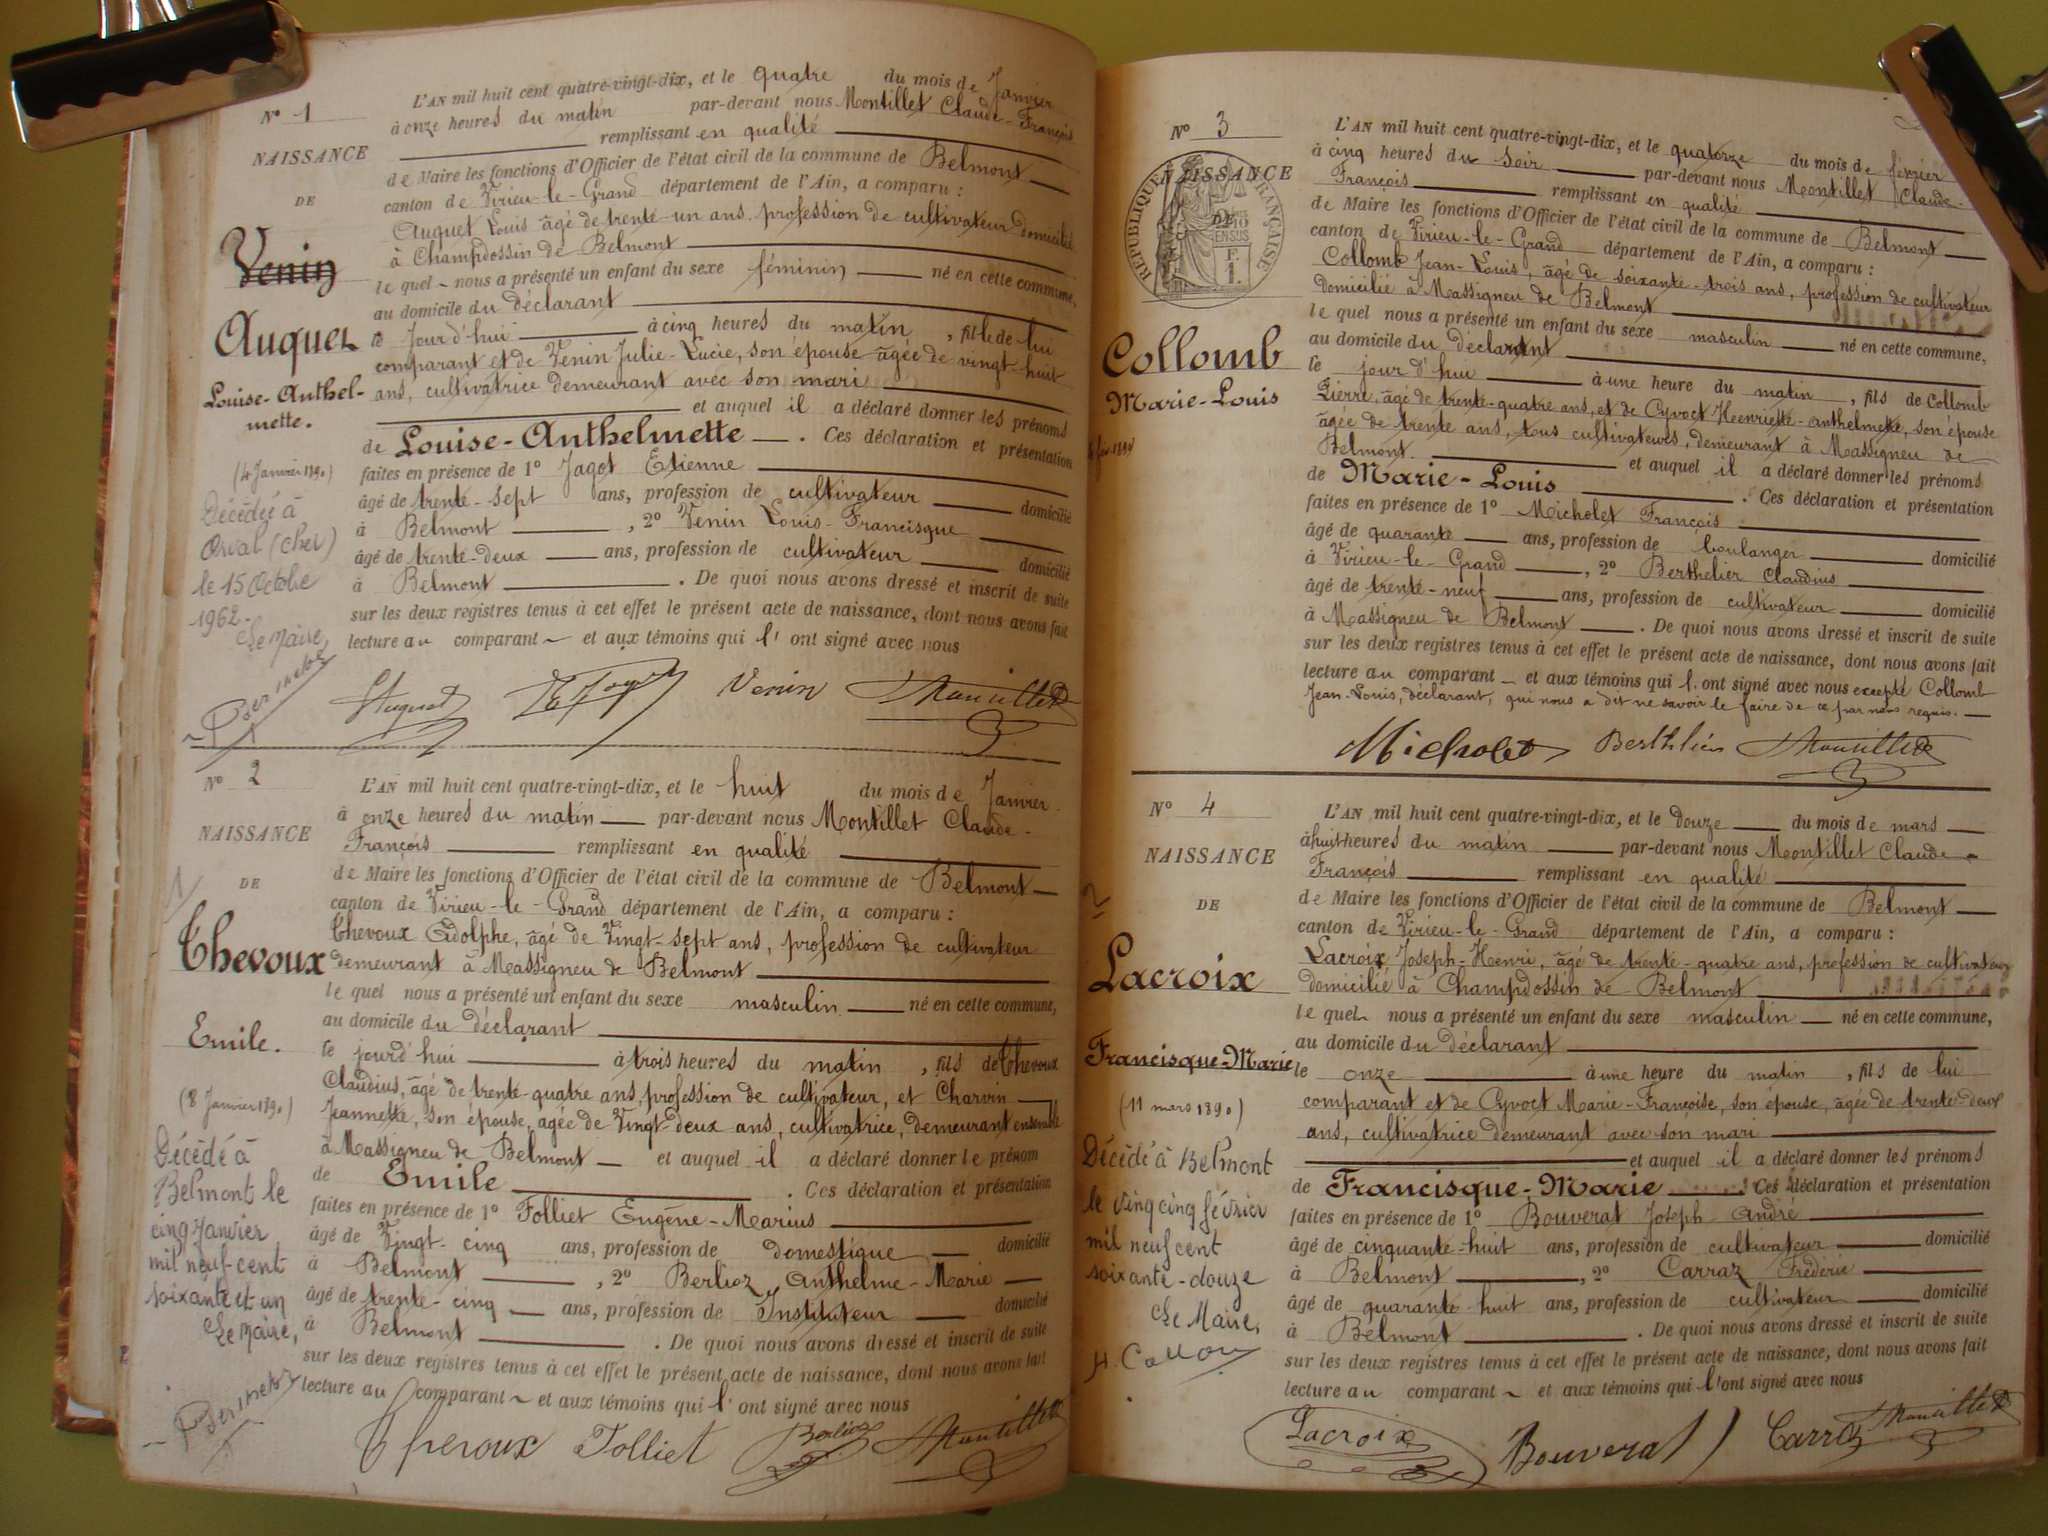 N° 1
NAISSANCE
DE
Venin
Auguet
Louise-Anthel-
mette.
(4 Janvier 1890)
Décédée à
Orval (Cher)
le 15 Octobre
1962.
Le Maire,
L'AN mil huit cent quatre-vingt-dix, et le quatre du mois de Janvier
à onze heures du matin par-devant nous Montillet Claude-François
remplissant en qualité
de Maire les fonctions d'Officier de l'état civil de la commune de Belmont
canton de Virieu-le-Grand département de l'Ain, a comparu :
Auguet Louis âgé de trente-un ans profession de cultivateur domicilié
à Champdossin de Belmont
lequel nous a présenté un enfant du sexe féminin né en cette commune,
au domicile du déclarant
Jourd'hui à cinq heures du matin, fille de lui
comparant et de Venin Julie-Lucie, son épouse âgée de vingt-huit
ans, cultivatrice demeurant avec son mari
et auquel il a déclaré donner les prénoms
de Louise-Anthelmette. Ces déclaration et présentation
faites en présence de 1° Jagot Etienne
âgé de trente-sept ans, profession de cultivateur domicilié
à Belmont, 2° Venin Louis-Francisque
âgé de trente-deux ans, profession de cultivateur domicilié
à Belmont. De quoi nous avons dressé et inscrit de suite
sur les deux registres tenus à cet effet le présent acte de naissance, dont nous avons fait
lecture au comparant et aux témoins qui l'ont signé avec nous
Auguet Jagot Venin Montillet
N° 2
NAISSANCE
DE
Thevoux
Emile.
(8 Janvier 1890)
Décédé à
Belmont le
cinq Janvier
mil neuf cent
soixante et un
Le Maire,
L'AN mil huit cent quatre-vingt-dix, et le huit du mois de Janvier
à onze heures du matin par-devant nous Montillet Claude-
François remplissant en qualité
de Maire les fonctions d'Officier de l'état civil de la commune de Belmont
canton de Virieu-le-Grand département de l'Ain, a comparu :
Thevoux Adolphe, âgé de Vingt-sept ans, profession de cultivateur
demeurant à Massigneu de Belmont
lequel nous a présenté un enfant du sexe masculin né en cette commune,
au domicile du déclarant
le jourd'hui à trois heures du matin, fils de Thevoux
Claudius, âgé de trente-quatre ans, profession de cultivateur, et Charvin
Jeannette, son épouse, agée de Vingt-deux ans, cultivatrice, demeurant ensemble
à Massigneu de Belmont et auquel il a déclaré donner le prénom
de Emile. Ces déclaration et présentation
faites en présence de 1° Folliet Eugène-Marius
âgé de Vingt-cinq ans, profession de domestique domicilié
à Belmont, 2° Berlioz Anthelme-Marie
âgé de trente-cinq ans, profession de Instituteur domicilié
à Belmont. De quoi nous avons dressé et inscrit de suite
sur les deux registres tenus à cet effet le présent acte de naissance, dont nous avons fait
lecture au comparant et aux témoins qui l'ont signé avec nous
Theroux Folliet Berlioz Montillet
N° 3
NAISSANCE
DE
RÉPUBLIQUE FRANÇAISE
Collomb
Marie-Louis
L'AN mil huit cent quatre-vingt-dix, et le quatorze du mois de février
à cinq heures du soir par-devant nous Montillet Claude-
François remplissant en qualité
de Maire les fonctions d'Officier de l'état civil de la commune de Belmont
canton de Virieu-le-Grand département de l'Ain, a comparu :
Collomb Jean-Louis, âgé de soixante-trois ans, profession de cultivateur
domicilié à Massigneu de Belmont
lequel nous a présenté un enfant du sexe masculin né en cette commune,
au domicile du déclarant
le jour d'hui à une heure du matin, fils de Collomb
Pierre, âgé de trente-quatre ans, et de Cyvoct Henriette-anthelmette, son épouse
âgée de trente ans, tous cultivateurs, demeurant à Massigneu de
Belmont. et auquel il a déclaré donner les prénoms
de Marie-Louis. Ces déclaration et présentation
faites en présence de 1° Micholet François
âgé de quarante ans, profession de boulanger domicilié
à Virieu-le-Grand, 2° Berthelier Claudius
âgé de trente-neuf ans, profession de cultivateur domicilié
à Massigneu de Belmont. De quoi nous avons dressé et inscrit de suite
sur les deux registres tenus à cet effet le présent acte de naissance, dont nous avons fait
lecture au comparant et aux témoins qui l'ont signé avec nous excepté Collomb
Jean-Louis, déclarant, qui nous a dit ne savoir le faire de ce par nous requis.
Micholet Berthelier Montillet
N° 4
NAISSANCE
DE
Lacroix
Francisque-Marie
(11 mars 1890)
Décédé à Belmont
le vingcinq février
mil neuf cent
soixante-douze
Le Maire,
L'AN mil huit cent quatre-vingt-dix, et le douze du mois de mars
à huit heures du matin par-devant nous Montillet Claude
François remplissant en qualité
de Maire les fonctions d'Officier de l'état civil de la commune de Belmont
canton de Virieu-le-Grand département de l'Ain, a comparu :
Lacroix Joseph-Henri, âgé de trente-quatre ans, profession de cultivateur
domicilié à Champdossin de Belmont
lequel nous a présenté un enfant du sexe masculin né en cette commune,
au domicile du déclarant
le onze à une heure du matin, fils de lui
comparant et de Cyvoct Marie-Françoise, son épouse, âgée de trente-deux
ans, cultivatrice demeurant avec son mari
et auquel il a déclaré donner les prénoms
de Francisque-Marie. Ces déclaration et présentation
faites en présence de 1° Bouverat Joseph André
âgé de cinquante-huit ans, profession de cultivateur domicilié
à Belmont, 2° Carraz Fréderic
âgé de quarante-huit ans, profession de cultivateur domicilié
à Belmont. De quoi nous avons dressé et inscrit de suite
sur les deux registres tenus à cet effet le présent acte de naissance, dont nous avons fait
lecture au comparant et aux témoins qui l'ont signé avec nous
Lacroix Bouverat Carraz Montillet